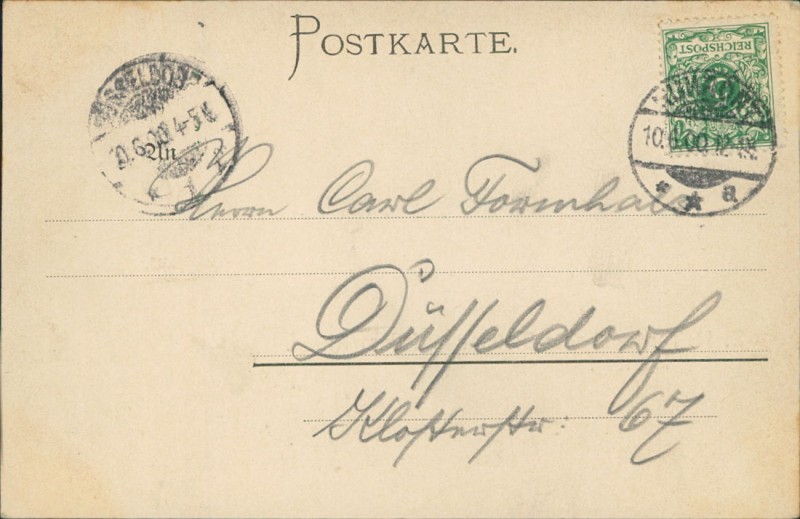 POSTKARTE.
REICHSPOST
DÜSSELDORF
10.6.00 4-5N.
1
10.6.00
a
An
Herrn Carl Formhals
Düsseldorf
Klosterstr: 67